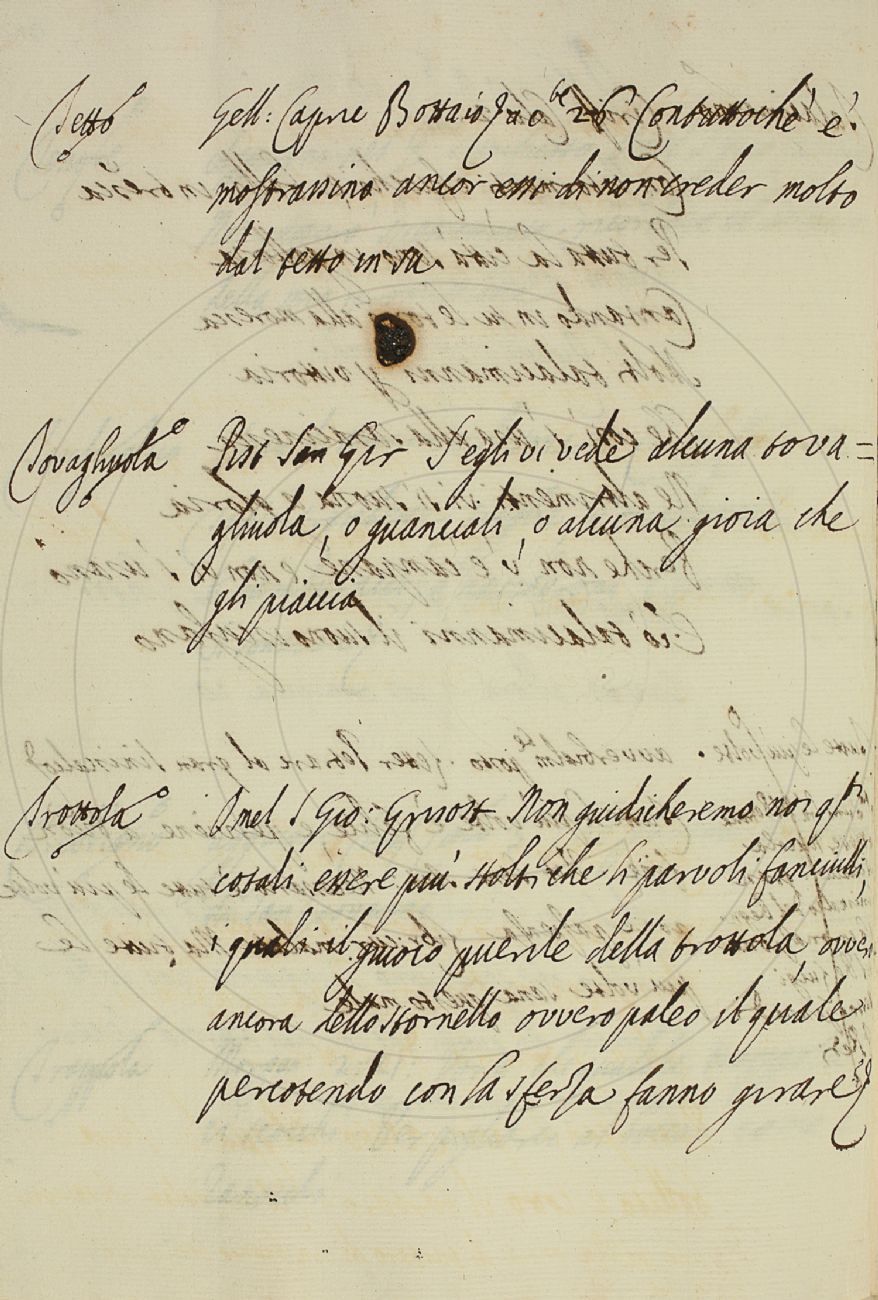 Tetto Gell: Capric Bottaio Contuttochè e'
mostrassino ancor essi di non creder molto
dal tetto in su.
Tovagliuola Pist San Gir S'egli vi vede alcuna tova=
gliuola, o guanciali, o alcuna gioia che
gli piaccia
Trottola Omel S Gio: Grisost Non giudicheremo noi q.sti
cotali essere più stolti che li parvoli fanciulli,
i quali il giuoco puerile della trottola, ovvero
ancora detto stornello ovvero paleo il quale
percotendo con la sferza fanno girare